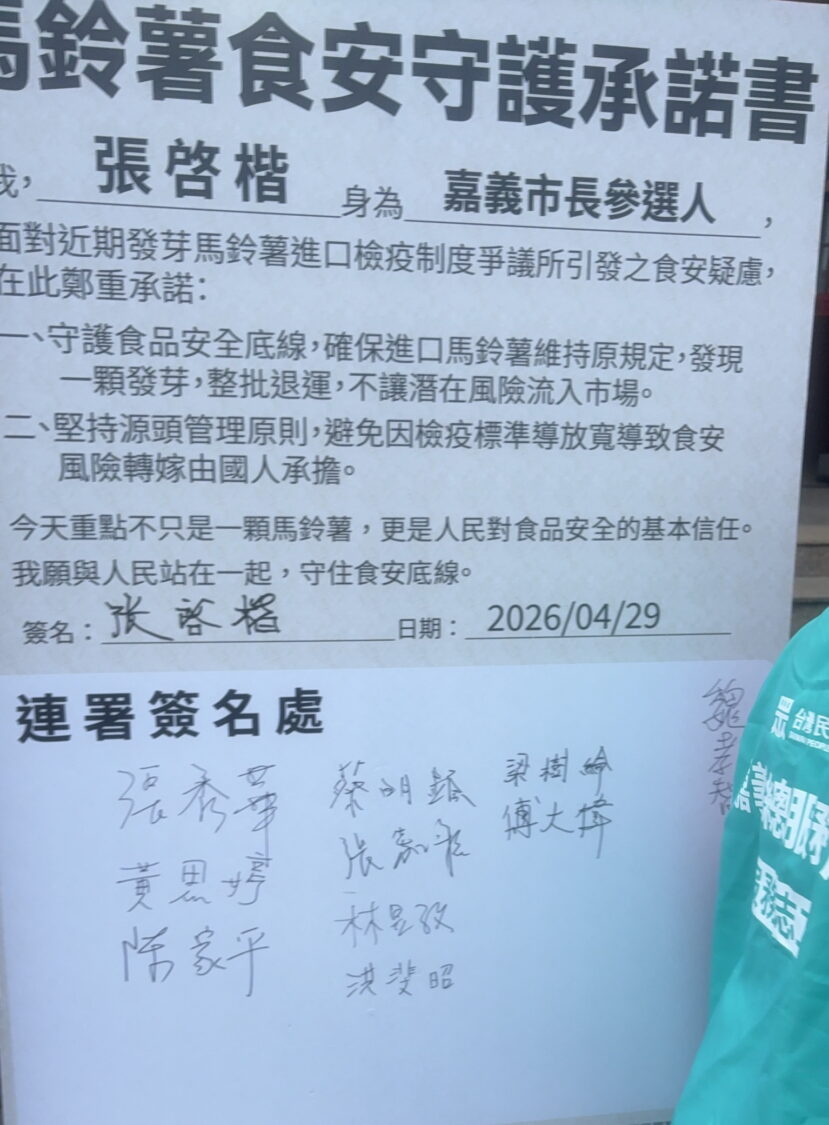 馬鈴薯食安守護承諾書
我，張啓楷 身為 嘉義市長參選人，
面對近期發芽馬鈴薯進口檢疫制度爭議所引發之食安疑慮，
在此鄭重承諾：
一、守護食品安全底線，確保進口馬鈴薯維持原規定，發現
一顆發芽，整批退運，不讓潛在風險流入市場。
二、堅持源頭管理原則，避免因檢疫標準導放寬導致食安
風險轉嫁由國人承擔。
今天重點不只是一顆馬鈴薯，更是人民對食品安全的基本信任。
我願與人民站在一起，守住食安底線。
簽名：張啓楷 日期：2026/04/29
連署簽名處
張秀華
黃思婷
陳家平
蔡明
張嘉
林昱孜
洪斐昭
梁樹
傅大偉
魏孝
眾 台灣民
總服務
志工